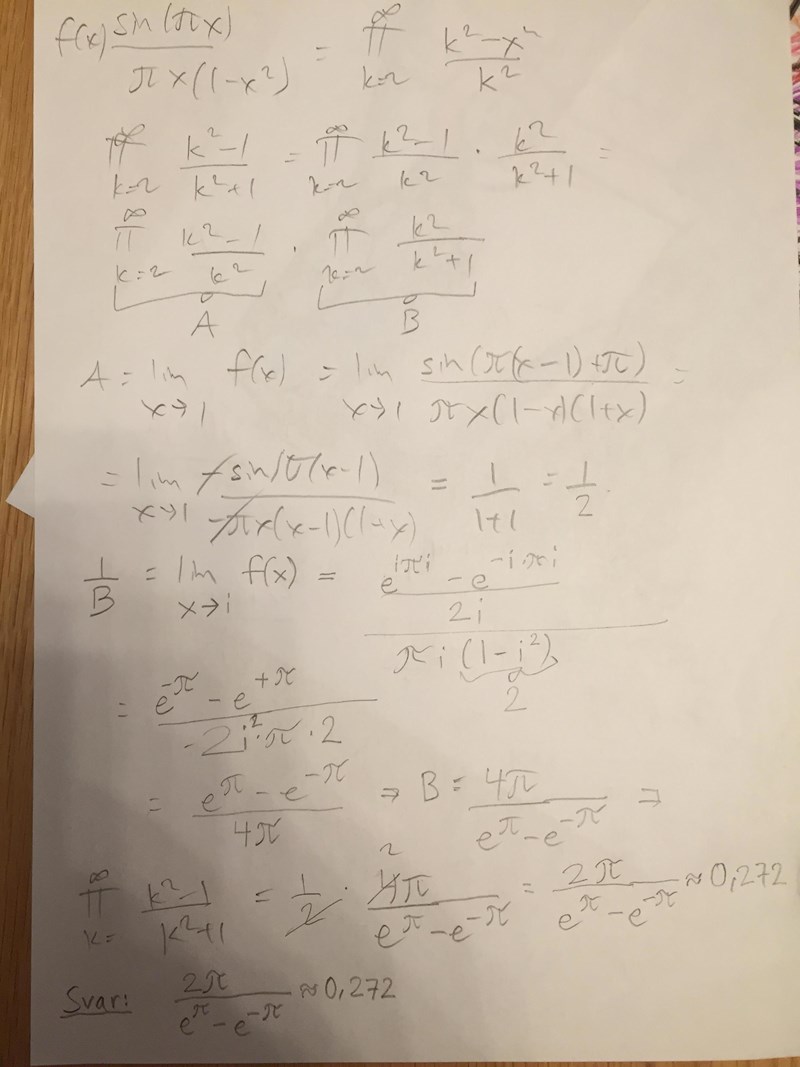 f(x) sin(πx) / πx(1-x²) = ∞∏k=2 (k²-x²)/k²
∞∏k=2 (k²-1)/(k²+1) = ∞∏k=2 (k²-1)/k² · k²/(k²+1) =
∞∏k=2 (k²-1)/k² · ∞∏k=2 k²/(k²+1)
A B
A = lim x→1 f(x) = lim x→1 sin(π(x-1)+π) / πx(1-x)(1+x) =
= lim x→1 -sin π(x-1) / -πx(x-1)(1+x) = 1/(1+1) = 1/2.
1/B = lim x→i f(x) = ((e^iπi - e^-i·πi) / 2i) / (πi(1-i²))
2
= (e^-π - e^+π) / (-2i²·π·2)
= (e^π - e^-π) / 4π ⇒ B = 4π / (e^π - e^-π) ⇒
∞∏k= (k²-1)/(k²+1) = 1/2 · 4π / (e^π - e^-π) = 2π / (e^π - e^-π) ≈ 0,272
Svar: 2π / (e^π - e^-π) ≈ 0,272